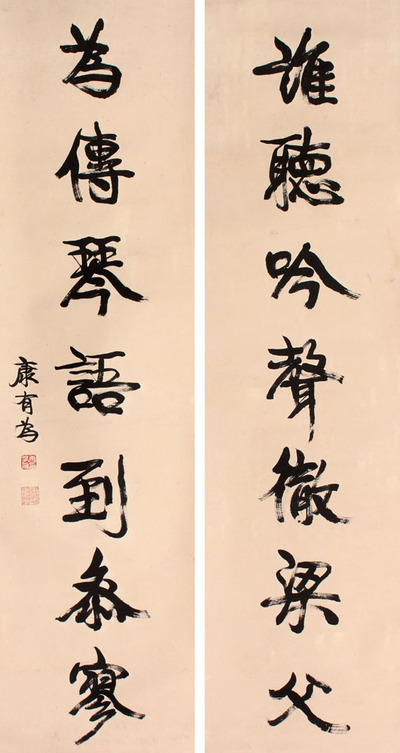 誰聽吟聲徹梁父
為傳琴語到參寥
康有為